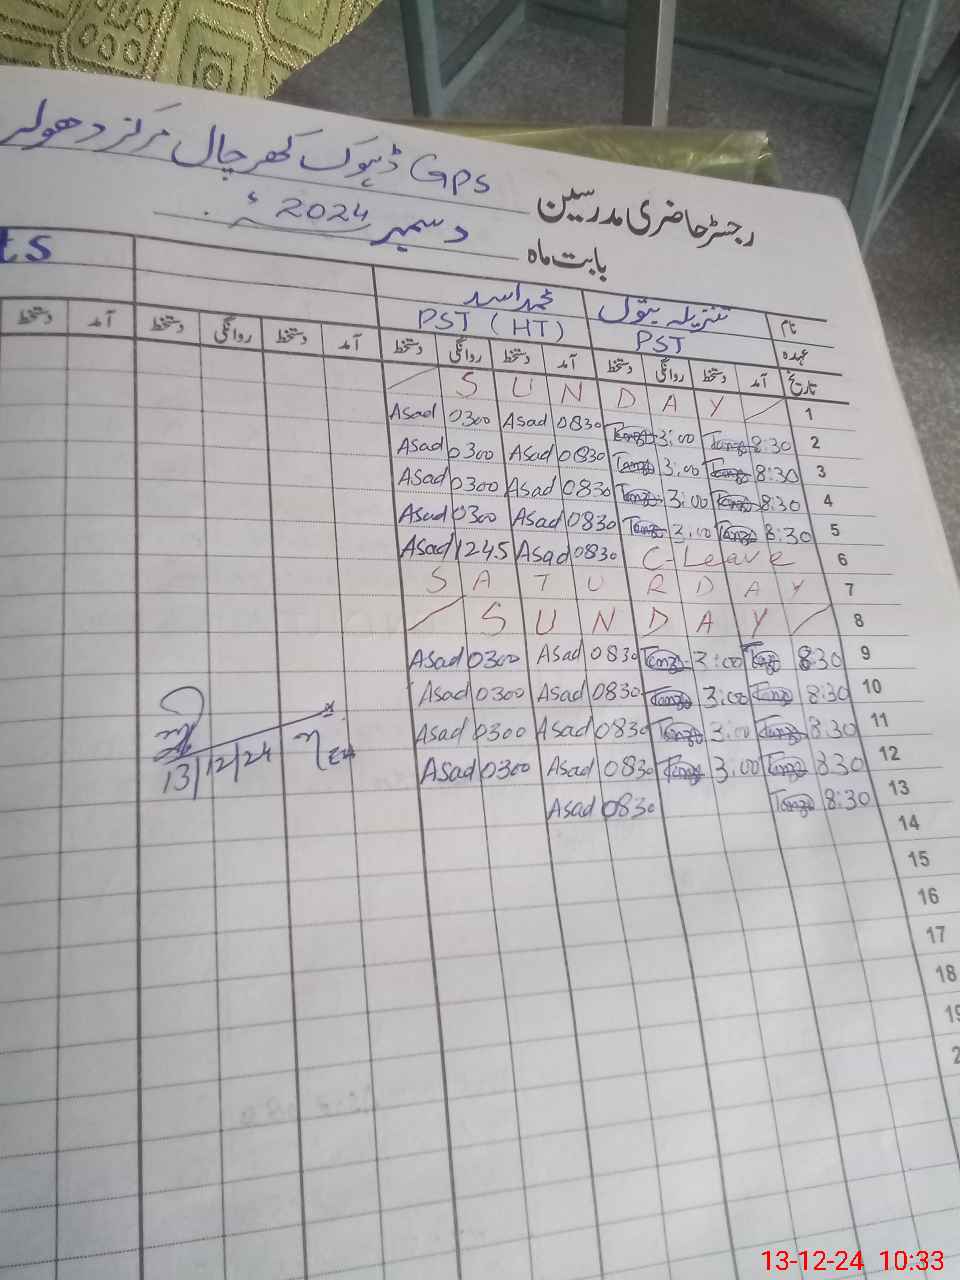 GPS ڈہوک کھرچال مرکز دھولر
رجسٹر حاضری مدرسین
بابت ماہ دسمبر 2024ء
ts
نام تنزیلہ بتول محمد اسد
عہدہ PST PST (HT)
تاریخ آمد دستخط روانگی دستخط آمد دستخط روانگی دستخط آمد دستخط روانگی دستخط آمد دستخط
1 SUNDAY
2 8:30 Tanz 3:00 Tanz 0830 Asad 0300 Asad
3 8:30 Tanz 3:00 Tanz 0830 Asad 0300 Asad
4 8:30 Tanz 3:00 Tanz 0830 Asad 0300 Asad
5 8:30 Tanz 3:00 Tanz 0830 Asad 0300 Asad
6 C-Leave 0830 Asad 1245 Asad
7 SATURDAY
8 SUNDAY
9 8:30 Tanz 3:00 Tanz 0830 Asad 0300 Asad
10 8:30 Tanz 3:00 Tanz 0830 Asad 0300 Asad
11 8:30 Tanz 3:00 Tanz 0830 Asad 0300 Asad
12 8:30 Tanz 3:00 Tanz 0830 Asad 0300 Asad
13 8:30 Tanz 0830 Asad
13/12/24
14
15
16
17
18
19
2
13-12-24 10:33